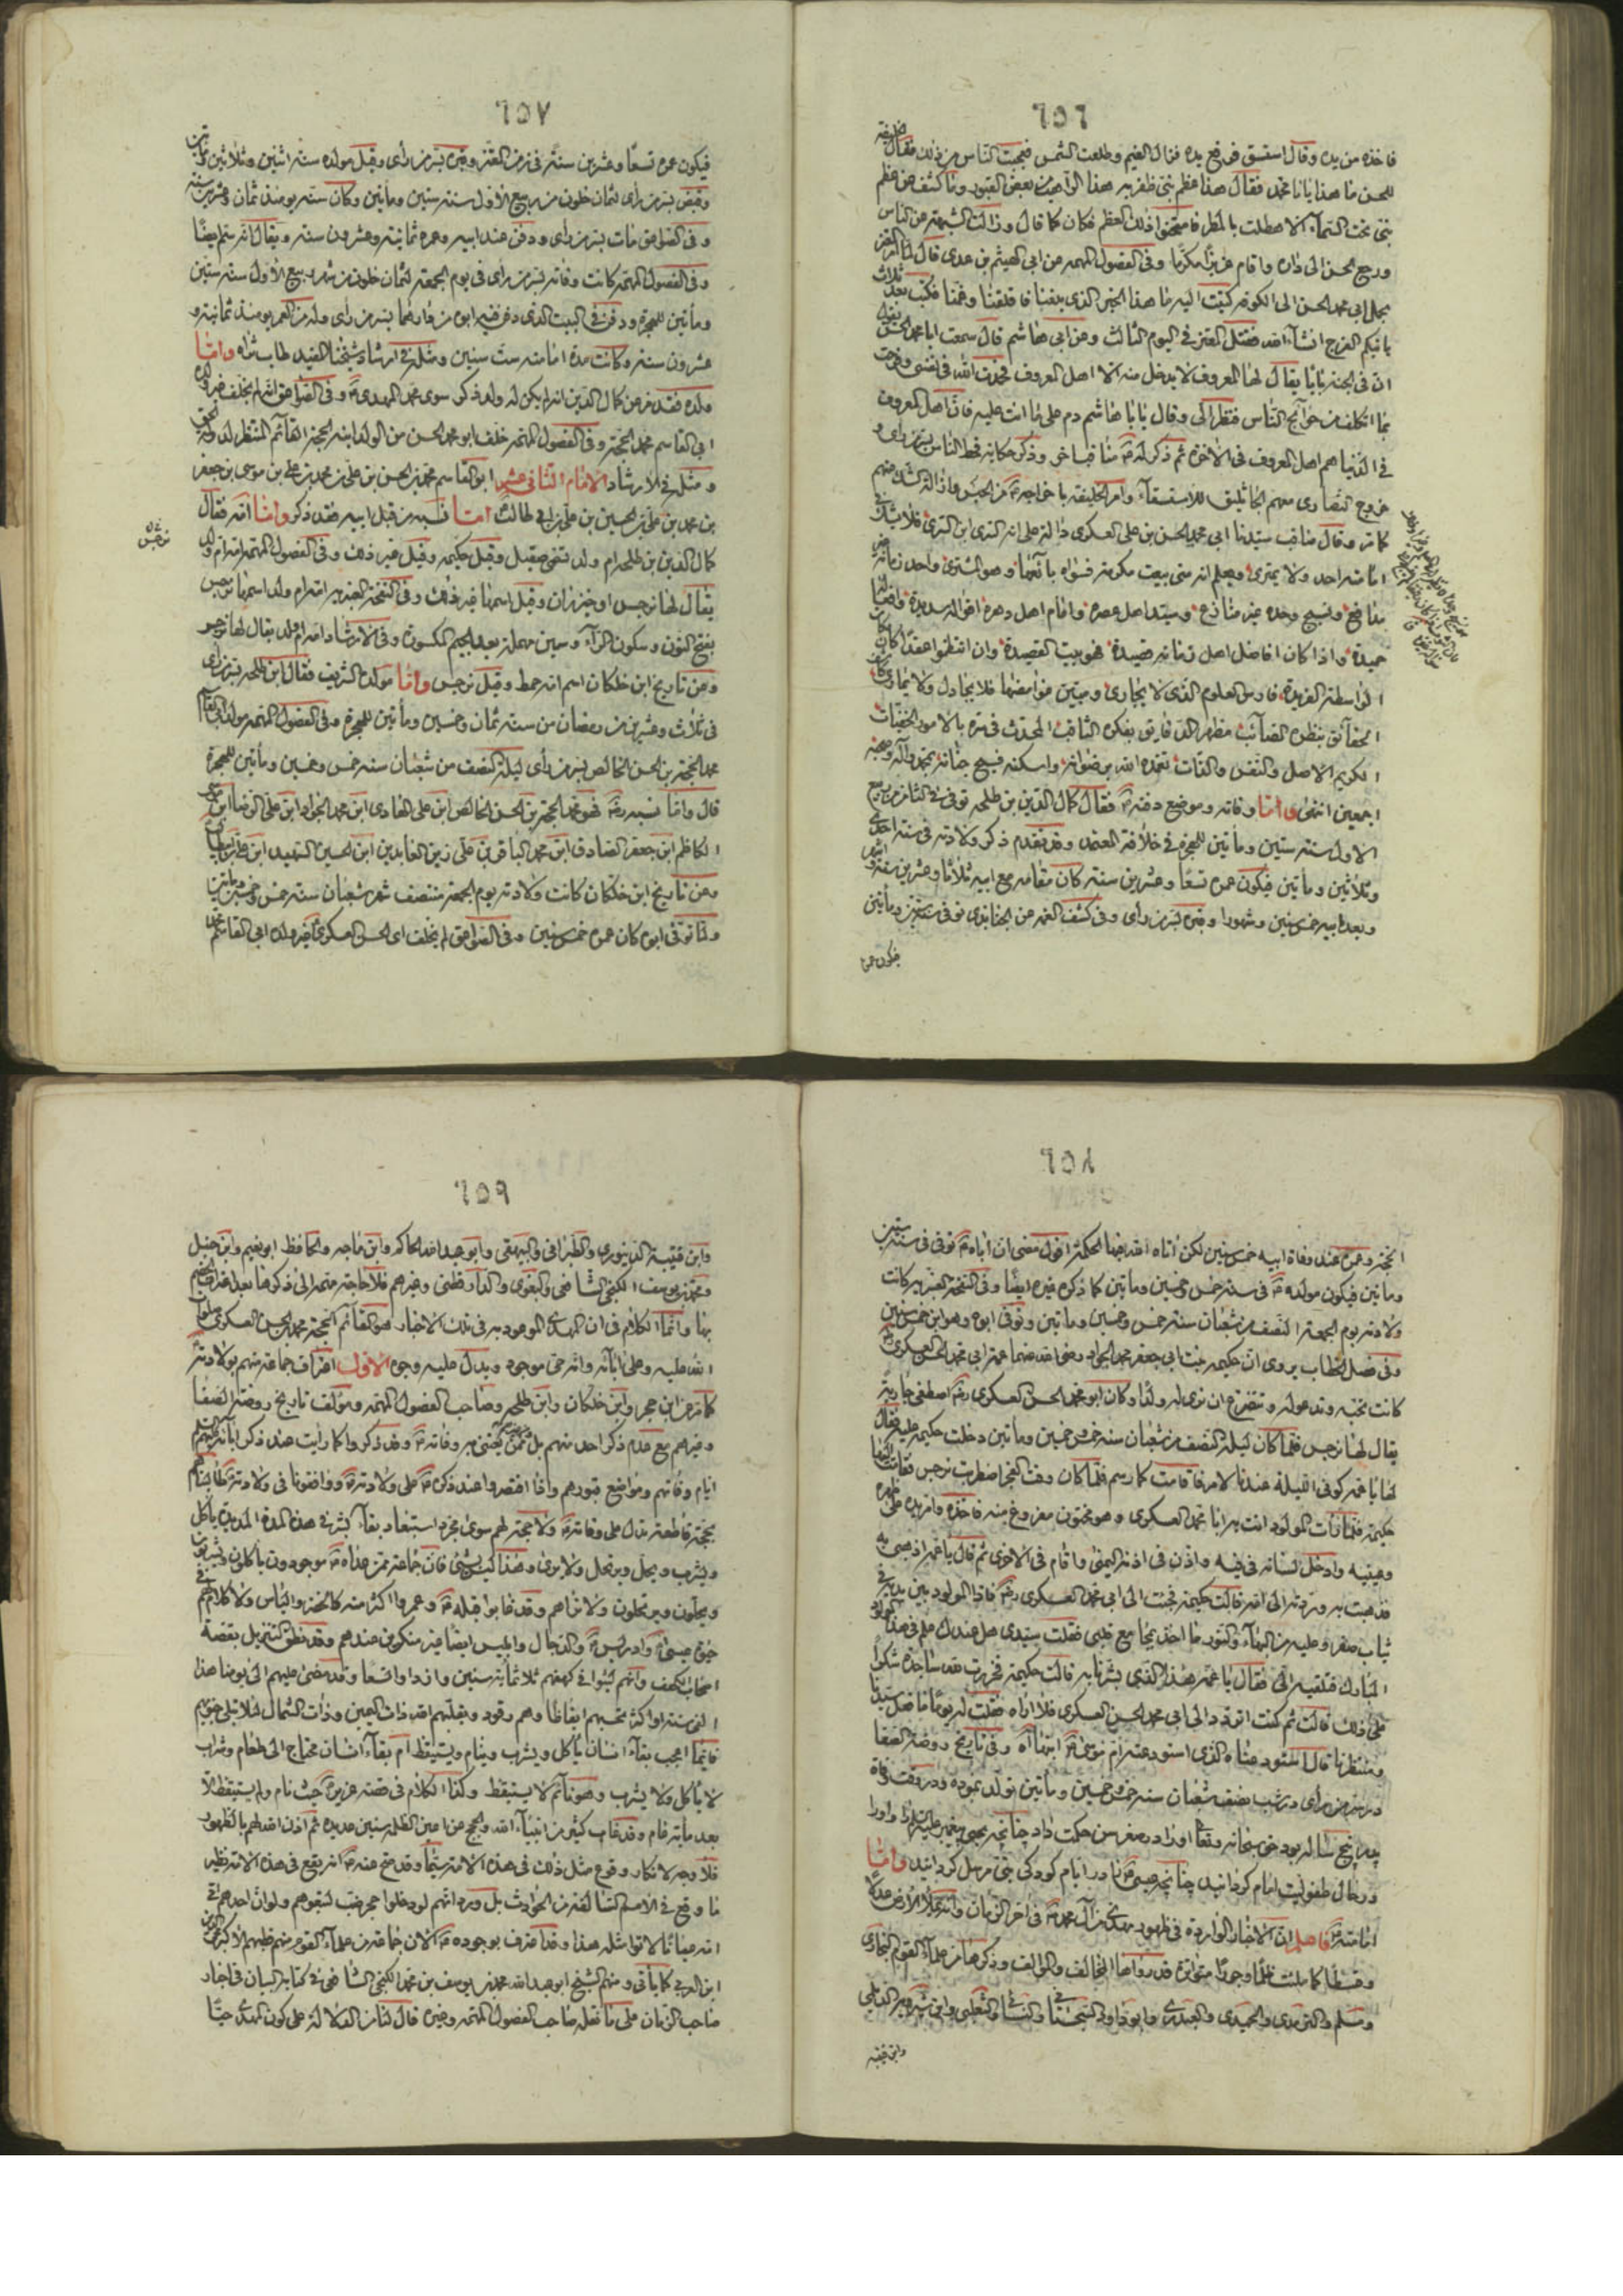 ٦٥٦
فاخذه من يده وقال استسق فرفع يده فزال الغيم وطلعت الشمس فعجبت الناس من ذلك فقال الخليفة
للحسن ما هذا يا ابا محمد فقال هذا عظم نبي ظفر به هذا الراهب من بعض القبور وما كشف عن عظم
نبي تحت السماء الا هطلت بالمطر فامتحنوا ذلك العظم فكان كما قال وزالت الشبهة عن الناس
ورجع الحسن الى داره واقام عزيزا مكرما وفى الفصول المهمه عن ابى الهيثم بن عدى قال لما امر المعتز
بحمل ابى محمد الحسن الى الكوفه كتبت اليه ما هذا الخبر الذى بلغنا فاقلقنا وغمنا فكتب بعد ثلاث
ياتيكم الفرج انشاء الله فقتل المعتز فى اليوم الثالث وعن ابى هاشم قال سمعت ابا محمد الحسن يقول
ان فى الجنة بابا يقال لها المعروف لا يدخل منه الا اهل المعروف فحمدت الله فى نفسى وفرحت
بما اتكلف من حوائج الناس فنظر الى وقال يا ابا هاشم دم على ما انت عليه فان اهل المعروف
فى الدنيا هم اهل المعروف فى الاخرة ثم ذكر له مناقبا اخر وذكر حكاية قحط الناس بسر من راى و
خروج النصارى معهم الجاثليق للاستسقاء وامر الخليفة باخراجه من الحبس وازالة الشك منهم
كما مر وقال مناقب سيدنا ابى محمد الحسن بن على العسكرى دالة على انه السرى ابن السرى فلا يشك فى
امامته احد ولا يمترى واعلم انه متى بيعت مكرمة فسواه بائعها وهو المشترى واحد زمانه من غير
مدافع ونسيج وحده غير منازع وسيد اهل عصره وامام اهل دهره اقواله سديدة وافعاله
حميدة واذا كان افاضل اهل زمانه قصيدة فهو بيت القصيدة وان انتظموا عقدا كان مكان
الواسطة الفريدة فارس العلوم الذى لا يجارى ومبين غوامضها فلا يجادل ولا يمارى كاشف
الحقائق بنظره الصائب مظهر الدقايق بفكره الثاقب المحدث فى سره بالامور الخفيات
الكريم الاصل والنفس والذات تغمده الله برضوانه واسكنه فسيح جنانه بمحمد وآله وصحبه
اجمعين انتهى واما وفاته وموضع دفنه فقال كمال الدين بن طلحه توفى فى الثامن من ربيع
الاول سنة ستين ومأتين للهجرة فى خلافة المعتمد وقد تقدم ذكر ولادته فى سنة احدى
وثلاثين ومأتين فيكون عمره تسعا وعشرين سنة كان مقامه مع ابيه ثلاثا وعشرين سنة واشهر
وبعد ابيه خمس سنين وشهورا وقبره بسر من راى وفى كشف الغمه عن الجنابذى توفى سنة ستين ومأتين
فيكون عمره
٦٥٧
فيكون عمره تسعا وعشرين سنة فى زمن المعتز وقبره بسر من راى وقيل مولده سنة اثنين وثلاثين ومأتين
وقبض بسر من راى لثمان خلون من ربيع الاول سنة ستين ومأتين وكان سنه يومئذ ثمان وعشرين سنة
وفى الصواعق مات بسر من راى ودفن عند ابيه وعمره ثمانية وعشرون سنة ويقال انه سم ايضا
وفى الفصول المهمه كانت وفاته بسر من راى فى يوم الجمعه لثمان خلون من شهر ربيع الاول سنة ستين
ومأتين للهجرة ودفن فى البيت الذى دفن فيه ابوه من دارهما بسر من راى وله من العمر يومئذ ثمانية و
عشرون سنة وكانت مدة امامته ست سنين ومثله فى ارشاد شيخنا المفيد طاب ثراه واما
ولده فقد مر عن كمال الدين انه لم يكن له ولد ذكر سوى محمد المهدى وفى الصواعق انه لم يخلف غير ولده
ابى القاسم محمد الحجة وفى الفصول المهمه خلف ابو محمد الحسن من الولد ابنه الحجة القائم المنتظر لدولة الحق
ومثله فى الارشاد الامام الثانى عشر ابو القاسم محمد بن الحسن بن على بن محمد بن على بن موسى بن جعفر
بن محمد بن على بن الحسين بن على بن ابى طالب اما نسبه من قبل ابيه فقد ذكر واما امه فقال
كمال الدين بن طلحه ام ولد تسمى صقيل وقيل حكيمه وقيل غير ذلك وفى الفصول المهمه امه ام ولد
يقال لها نرجس او خيزران وقيل اسمها غير ذلك وفى النسخة المعتبره امه ام ولد اسمها نرجس
بفتح النون وسكون الراء وسين مهملة بعد الجيم المكسورة وفى الارشاد امه ام ولد يقال لها نرجس
وعن تاريخ ابن خلكان اسم امه خمط وقيل نرجس واما مولده الشريف فقال ابن طلحه بسر من راى
فى ثلاث وعشرين من رمضان من سنة ثمان وخمسين ومأتين للهجرة وفى الفصول المهمه مولد ابى القاسم
محمد الحجة بن الحسن الخالص بسر من راى ليلة النصف من شعبان سنه خمس وخمسين ومأتين للهجرة
قال واما نسبه فهو محمد الحجة بن الحسن الخالص ابن على الهادى ابن محمد الجواد ابن على الرضا ابن موسى
الكاظم ابن جعفر الصادق ابن محمد الباقر بن على زين العابدين ابن الحسين الشهيد ابن على بن ابى طالب
وعن تاريخ ابن خلكان كانت ولادته يوم الجمعة منتصف شهر شعبان سنه خمس وخمسين ومأتين
ولما توفى ابوه كان عمره خمس سنين وفى الصواعق لم يخلف اى الحسن العسكرى غير ولده ابى القاسم محمد
نرجس
٦٥٨
الحجة وعمره عند وفاة ابيه خمس سنين لكن اتاه الله فيها الحكمة اقول مضى ان اباه توفى فى سنة ستين
ومأتين فيكون مولده فى سنة خمس وخمسين ومأتين كما ذكره غيره ايضا وفى النسخة المعتبره كانت
ولادته يوم الجمعة النصف من شعبان سنة خمس وخمسين ومأتين وتوفى ابوه وهو ابن خمس سنين
وفى فصل الخطاب يروى ان حكيمه بنت ابى جعفر محمد الجواد رضى الله عنهما عمة ابى محمد الحسن العسكرى
كانت تحبه وتدعو له وتتضرع ان ترى له ولدا وكان ابو محمد الحسن العسكرى اصطفى جارية
يقال لها نرجس فلما كان ليلة النصف من شعبان سنه خمس وخمسين ومأتين دخلت حكيمه عليه فقال
لها يا عمه كونى الليلة عندنا لامر فاقامت كما رسم فلما كان وقت الفجر اضطربت نرجس فقامت اليها
حكيمه فلما رأت المولود اتت به ابا محمد العسكرى وهو مختون مفروغ منه فاخذه وامر يده على ظهره
وعينيه وادخل لسانه فى فيه واذن فى اذنه اليمنى واقام فى الاخرى ثم قال يا عمه اذهبى به
فذهبت به وردته الى امه قالت حكيمه فجئت الى ابى محمد العسكرى فاذا المولود بين يديه فى
ثياب صفر وعليه من البهاء والنور ما اخذ بمجامع قلبى فقلت سيدى هل عندك علم فى هذا المولود
المبارك فتلقيه الى فقال يا عمه هذا الذى بشرنا به قالت حكيمه فخررت لله ساجدة شكرا
على ذلك قالت ثم كنت اتردد الى ابى محمد الحسن العسكرى فلا اراه فقلت له يوما ما فعل سيدنا
ومنتظرنا قال استودعناه الذى استودعته ام موسى ابنها اه وفى تاريخ روضة الصفا
در سر من راى در شب نصف شعبان سنه خمس وخمسين ومأتين تولد نموده ودر وقت وفاة
پدر پنج ساله بود حق سبحانه وتعالى او را در صغر سن حكمت داد چنانچه يحيى پيغمبر عليه السلام را واورا
در حال طفوليت امام گردانيد چنانچه عيسى را در ايام كودكى نبى مرسل گردانيد واما
امامته فاعلم ان الاخبار الواردة فى ظهور مهدى من آل محمد فى اخر الزمان وانه يملأ الارض عدلا
وقسطا كما ملئت ظلما وجورا متواترة قد رواها المخالف والموالف وذكرها من علماء القوم البخارى
ومسلم والترمذى والحميدى والعبدرى وابو داود السجستانى والنسائى والثعلبى وابن شيرويه الديلمى
وابن قتيبه
٦٥٩
وابن قتيبة الدينورى والطبرانى والبيهقى وابو عبد الله الحاكم وابن ماجه والحافظ ابو نعيم وابن حنبل
ومحمد بن يوسف الكنجى الشافعى والبغوى والدارقطنى وغيرهم فلا حاجة منه الى ذكرها بعد اعتراف الخصم
بها وانما الكلام فى ان المهدى الموعود به فى تلك الاخبار هو القائم الحجة محمد بن الحسن العسكرى صلوات
الله عليه وعلى آبائه وانه حى موجود ويدل عليه وجوه الاول اعتراف جماعة منهم بولادته
كما مر عن ابن حجر وابن خلكان وابن طلحه وصاحب الفصول المهمه ومؤلف تاريخ روضة الصفا
وغيرهم مع عدم ذكر احد منهم بل ممن يعتنى به وفاته وقد ذكروا كما رأيت عند ذكر آبائه عليهم السلام
ايام وفاتهم ومواضع قبورهم واذا اقتصروا عند ذكره على ولادته ووافقونا فى ولادته طالبناهم
بحجة قاطعة تدل على وفاته ولا حجة لهم سوى مجرد استبعاد بقاء بشر فى هذه المدة المديدة يأكل
ويشرب ويحل ويرتحل ولا يرى وهذا ليس بشئ فان جماعة ممن عداه موجودون يأكلون ويشربون
ويحلون ويرتحلون ولا نراهم وقد غابوا قبله وعمروا اكثر منه كالخضر والياس ولا كلام لهم فى
حيوة عيسى وادريس والدجال وابليس ايضا غير منكور عندهم وقد نطق التنزيل بقصة
اصحاب الكهف وانهم لبثوا فى كهفهم ثلاثمائة سنين وازدادوا تسعا وقد مضى عليهم الى يومنا هذا
الف سنة او اكثر تحسبهم ايقاظا وهم رقود ويقلبهم الله ذات اليمين وذات الشمال لئلا تبلى جنوبهم
فايما اعجب بقاء انسان يأكل ويشرب وينام ويستيقظ ام بقاء انسان محتاج الى طعام وشراب
لا يأكل ولا يشرب وهو نائم لا يستيقظ وكذا الكلام فى قصة عزير حيث نام ولم يستيقظ الا
بعد مأية عام وقد غاب كثير من انبياء الله والحجج عن اعين الظلمه سنين عديدة ثم اذن الله لهم بالظهور
فلا وجه لانكار وقوع مثل ذلك فى هذه الامة سيما وقد صح عنه انه يقع فى هذه الامة نظير
ما وقع فى الامم السالفة من الحوادث بل ورد انهم لو دخلوا جحر ضب لتبعوهم ولو ان احدهم اتى
امه عيانا لاتوا مثله هذا وقد اعترف بوجوده الان جماعة من علماء القوم منهم
ابن العربى كما يأتى ومنهم الشيخ ابو عبد الله محمد بن يوسف بن محمد الكنجى الشافعى فى كتابه البيان فى اخبار
صاحب الزمان على ما نقله صاحب الفصول المهمه وغيره قال لنا من الدلالة على كون المهدى حيا